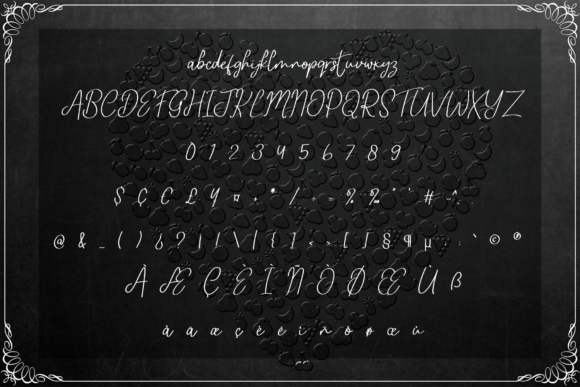 abcdefghijklmnopqrstuvwxyz
ABCDEFGHIJKLMNOPQRSTUVWXYZ
0 1 2 3 4 5 6 7 8 9
$ Ç C £ ¥ ¤ + * / ÷ = % ‰ " ' # ^
@ & _ ( ) ¿ ? ¡ ! \ | { } < > [ ] § ¶ µ . : ` © ®
À Æ Ç È Ì Ñ Ò Ø Œ Ù ß
à a æ ç è é ì ñ ò ø œ ù